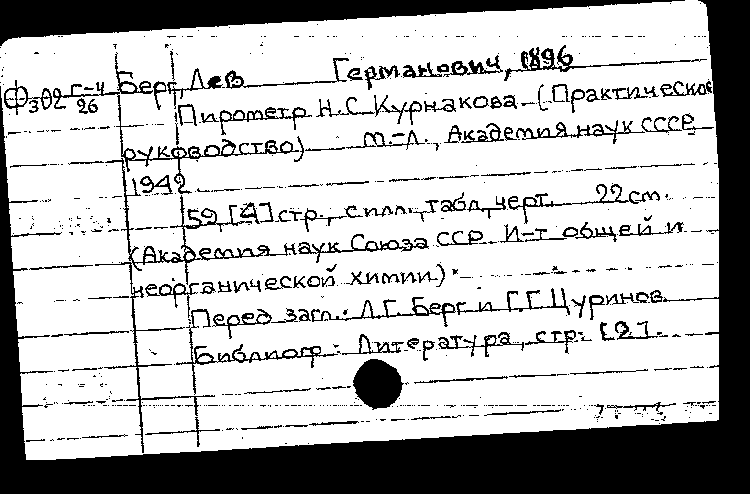 Ф302 Г-4/26 Берг, Лев Германович, 1896
Пирометр Н.С. Курнакова (Практическое
руководство) М.-Л., Академия наук СССР
1942.
59, [4] стр., с илл., табл., черт. 22 cm.
(Академия наук Союза ССР. И-т общей и
неорганической химии).
Перед загл.: Л.Г. Берг и Г.Г. Цуринов.
Библиогр: Литература, стр: [2].